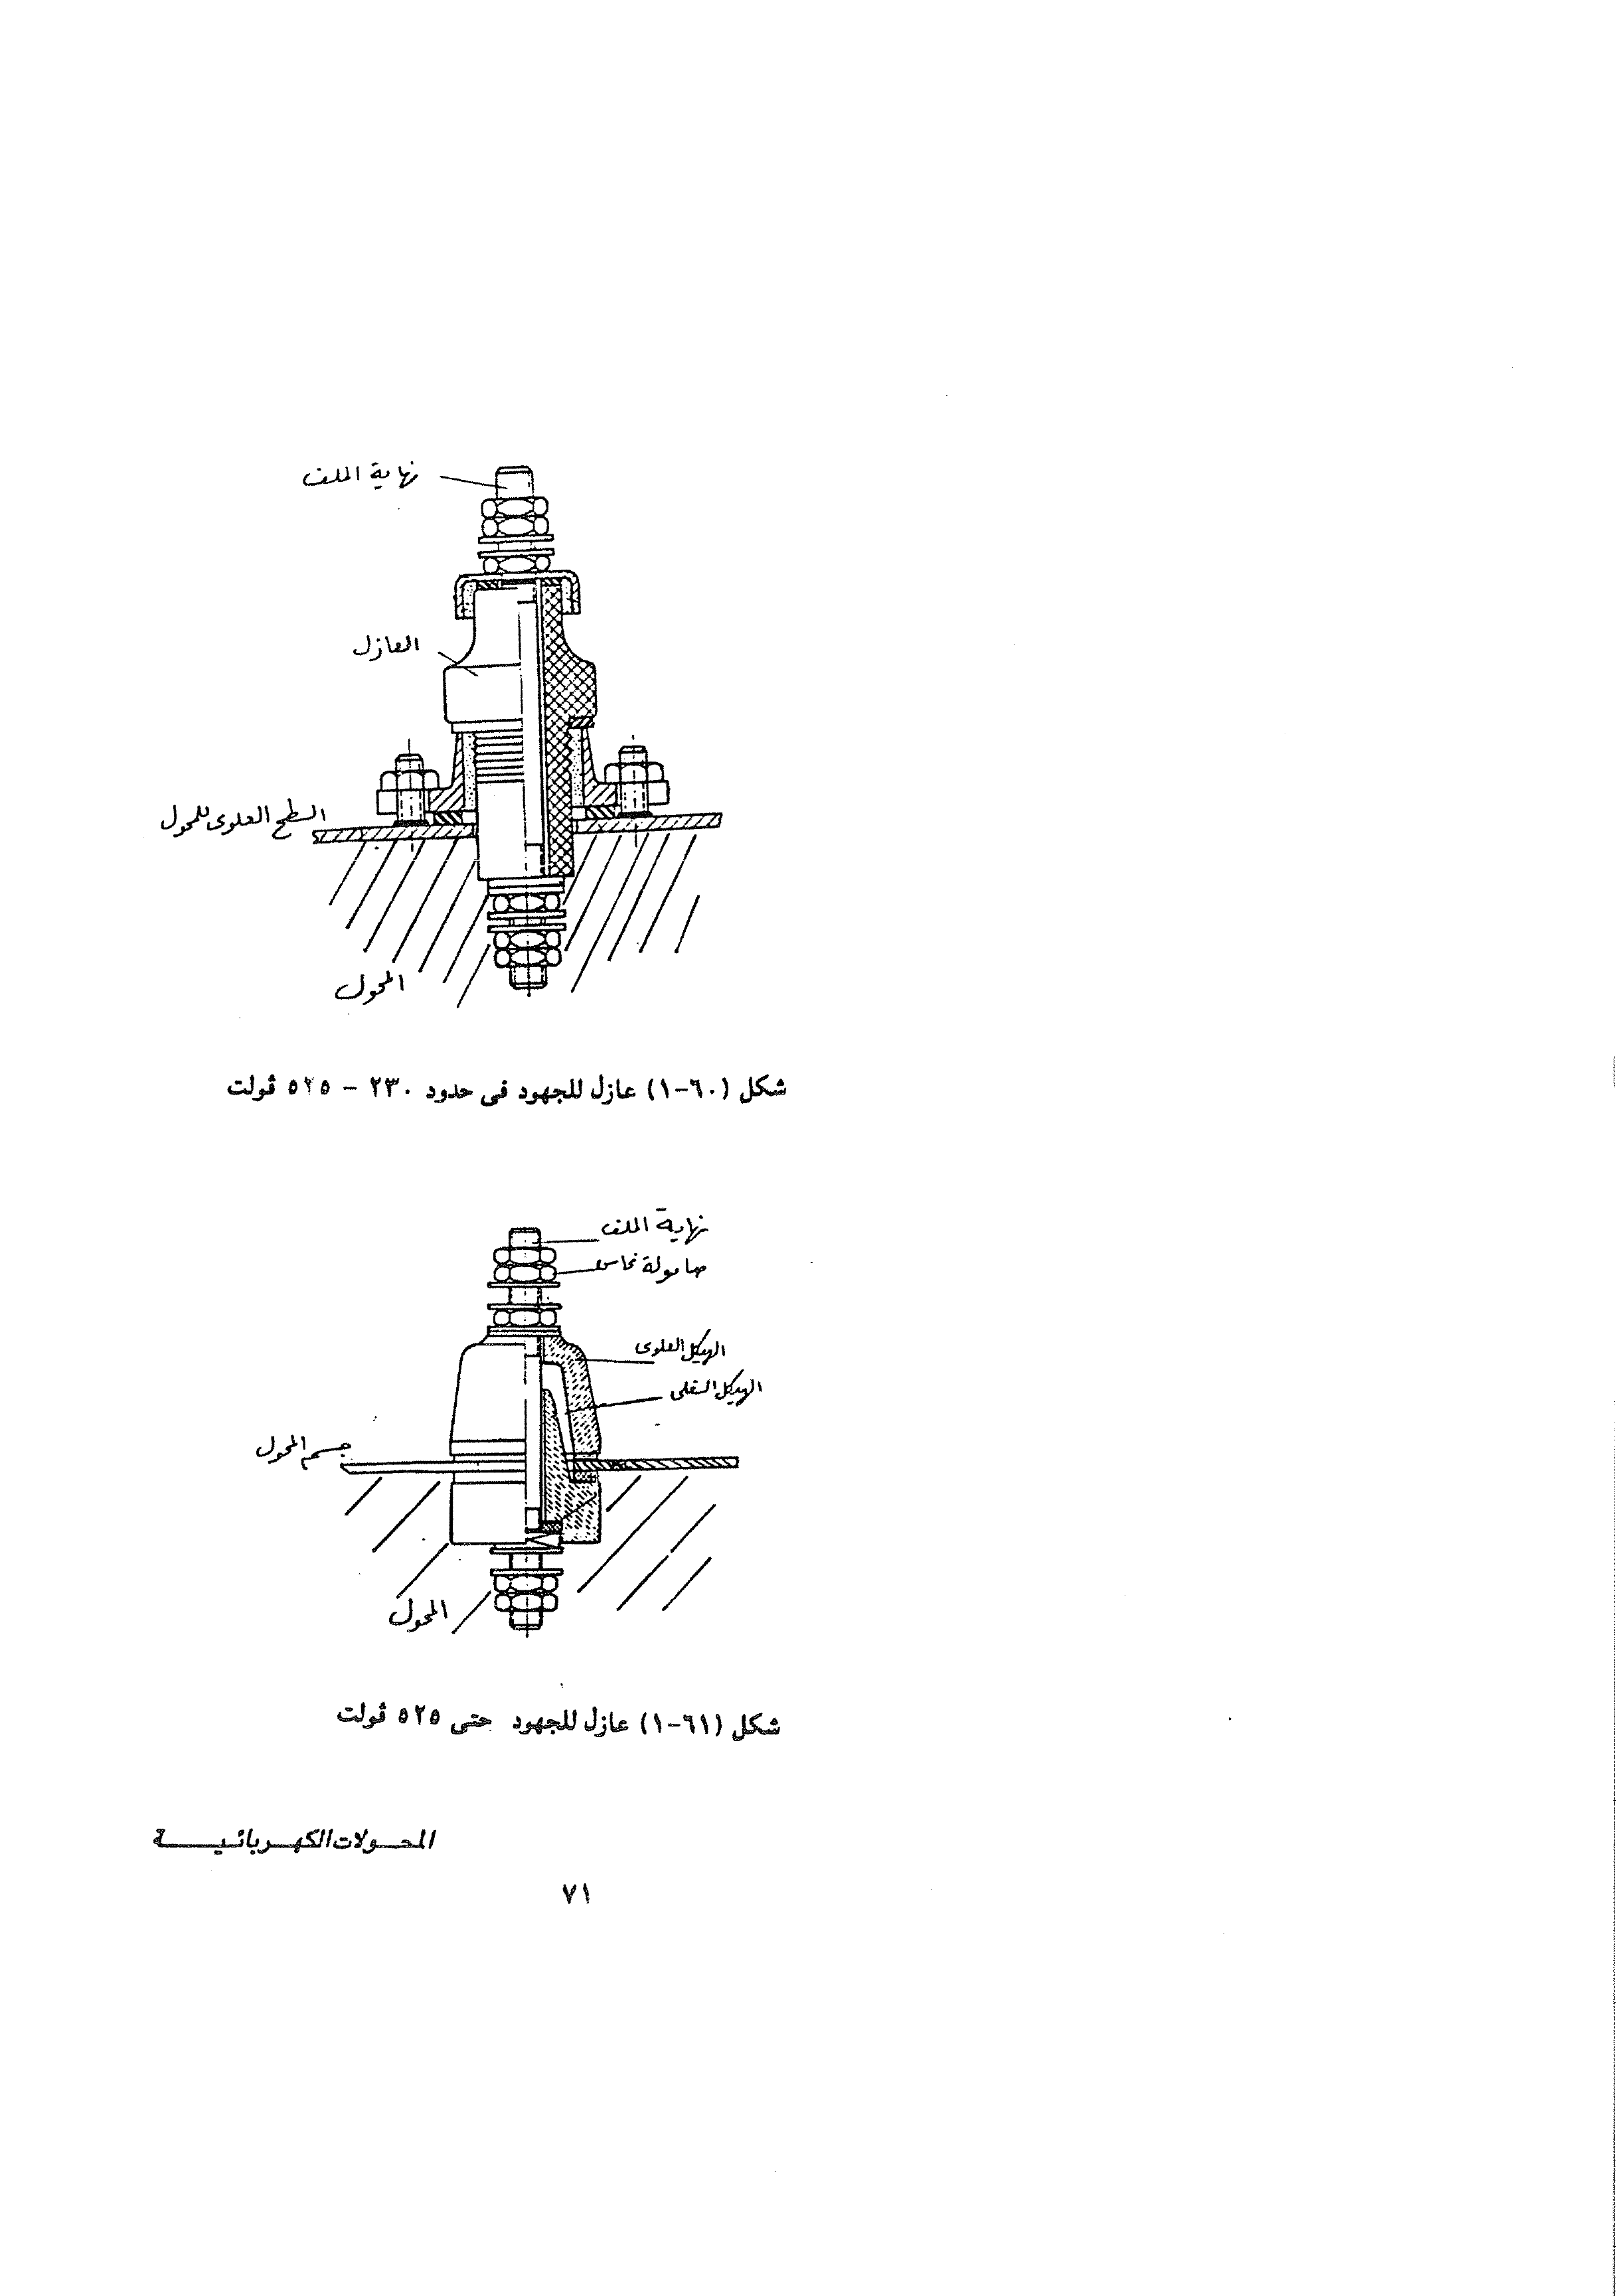 نهاية الملف
العازل
السطح العلوى للمحول
المحول
شكل (٦٠-١) عازل للجهود فى حدود ٢٣٠ - ٥٢٥ ڤولت
نهاية الملف
صامولة نحاس
الهيكل العلوى
الهيكل السفلى
جسم المحول
المحول
شكل (٦١-١) عازل للجهود حتى ٥٢٥ ڤولت
المحـــولات الكهـــربائيـــــة
٧١